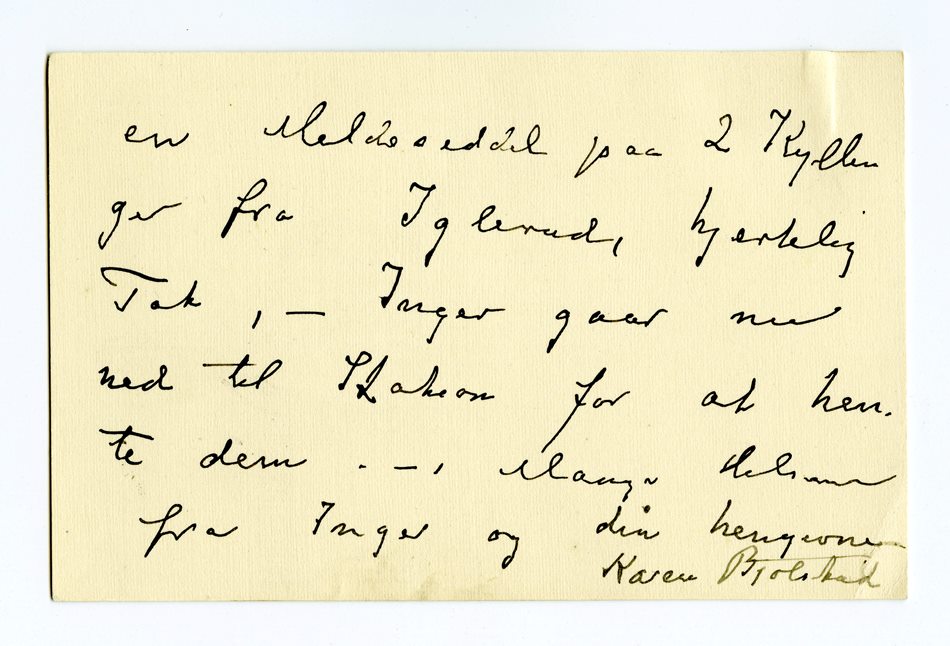 en Meldeseddel paa 2 Kyllin
ger fra Iglerud, hjertelig
Tak, — Inger gaar nu
ned til Station for at hen-
te dem . — , Mange Hilsener
fra Inger og din hengivne
Karen Bjølstad